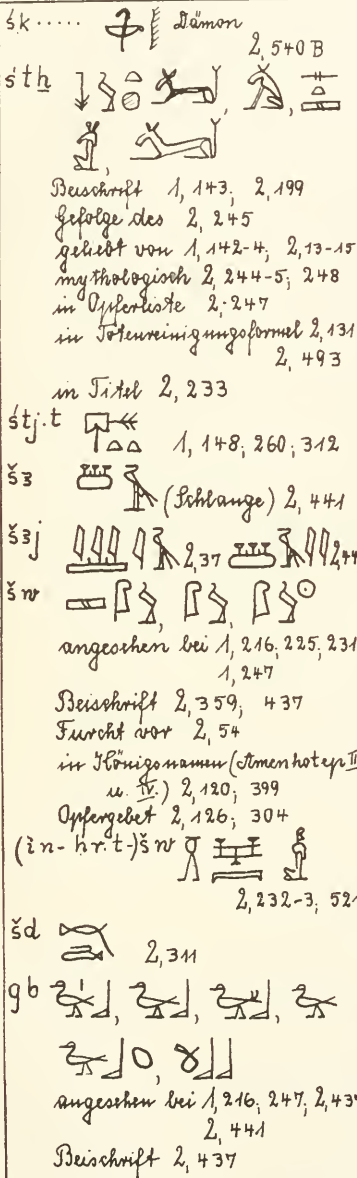 śk ..... Dämon
2, 540 B
śtẖ
Beischrift 1, 143; 2, 199
Gefolge des 2, 245
geliebt von 1, 142-4; 2, 13-15
mythologisch 2, 244-5; 248
in Opferliste 2, 247
in Totenreinigungsformel 2, 131
2, 493
in Titel 2, 233
śtj.t 1, 148; 260; 312
šꜣ (Schlange) 2, 441
šꜣj 2, 37
šw
angesehen bei 1, 216; 225; 231
1, 247
Beischrift 2, 359; 437
Furcht vor 2, 54
in Königsnamen (Amenhotep II
u. IV.) 2, 120; 399
Opfergebet 2, 126; 304
(in-ḥr.t-)šw
2, 232-3; 521
šd 2, 311
gb
angesehen bei 1, 216; 247; 2, 437
2, 441
Beischrift 2, 437